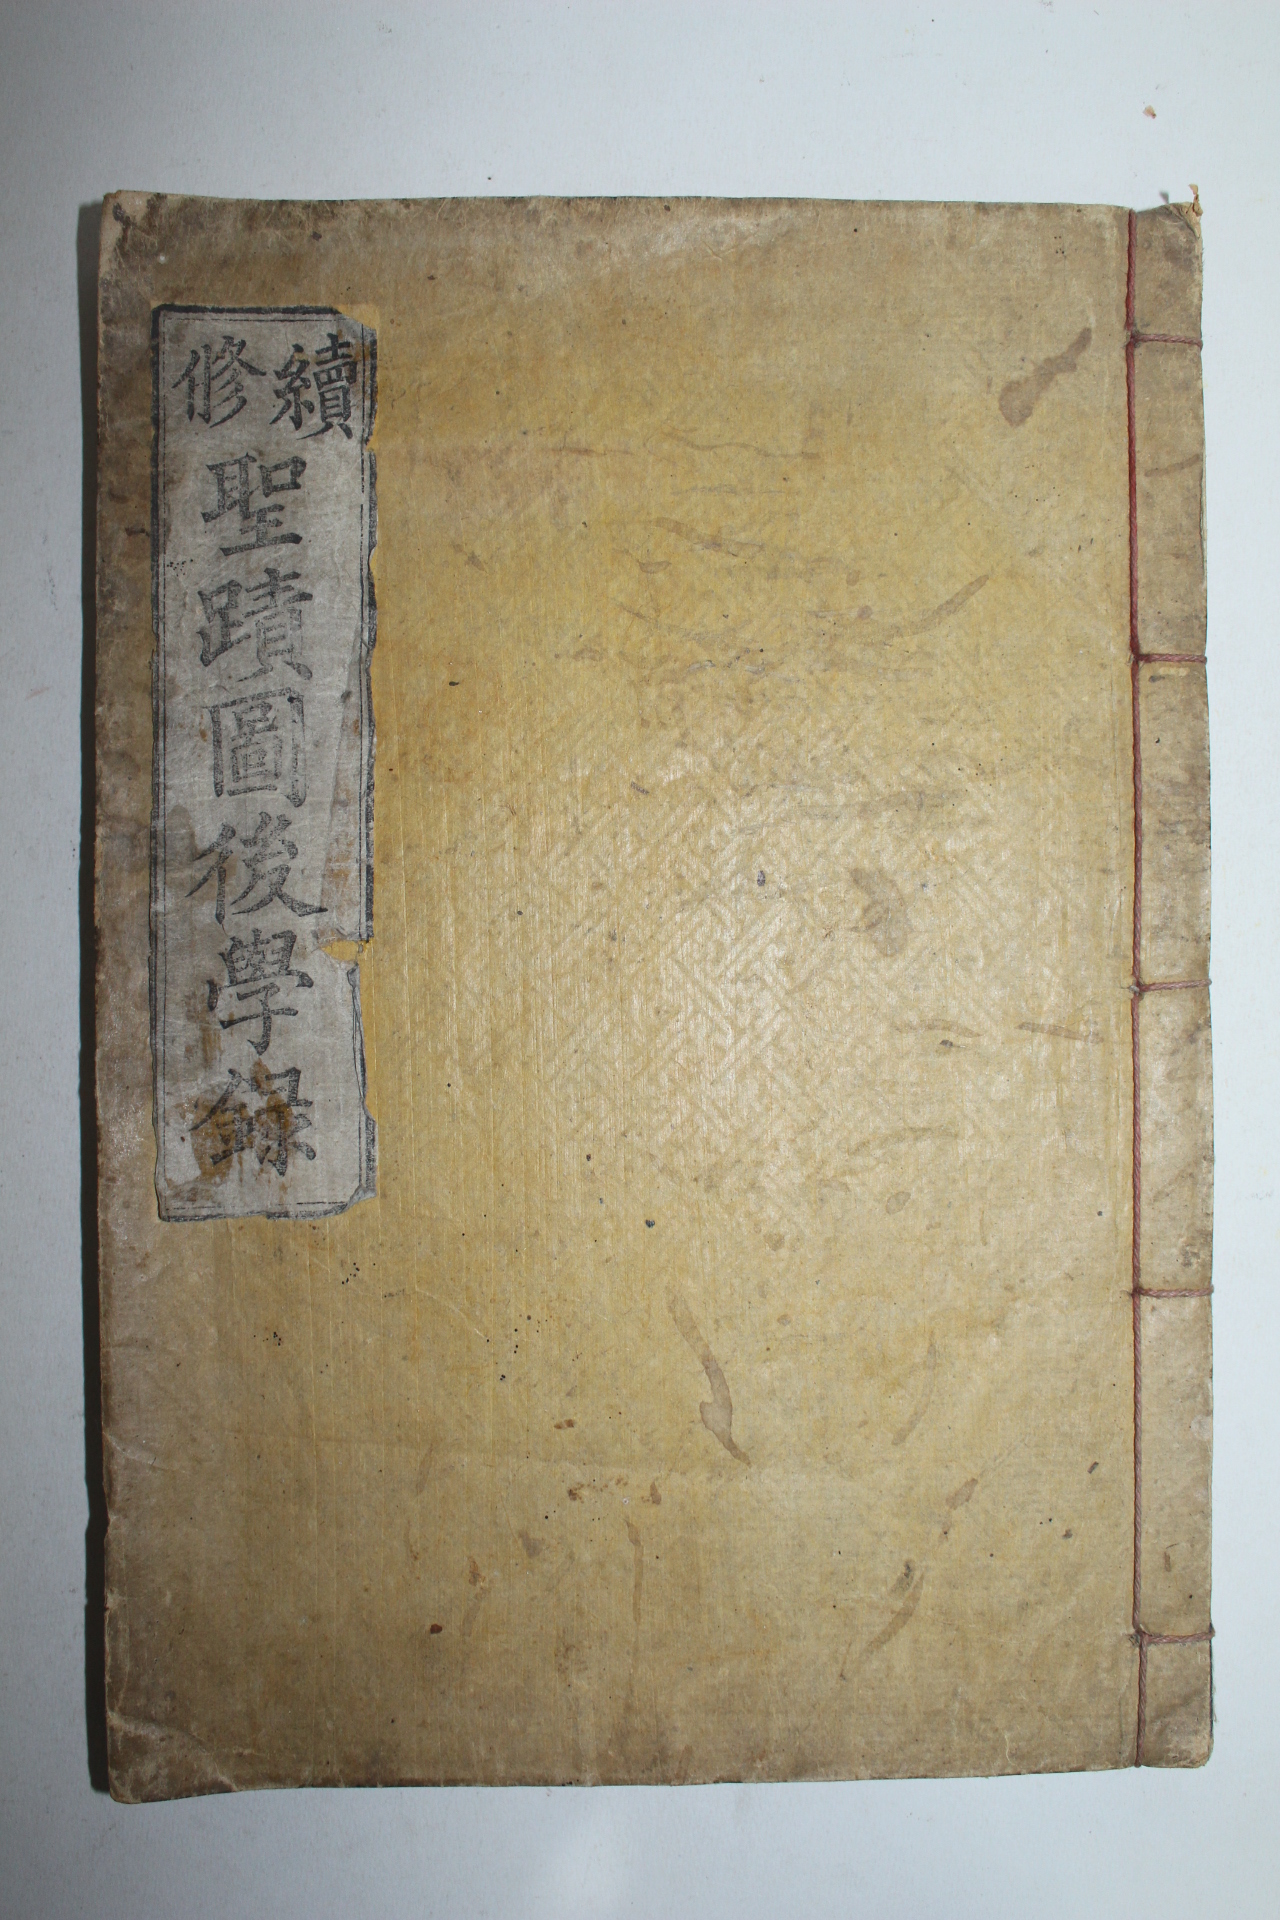 續修
聖蹟圖後學錄